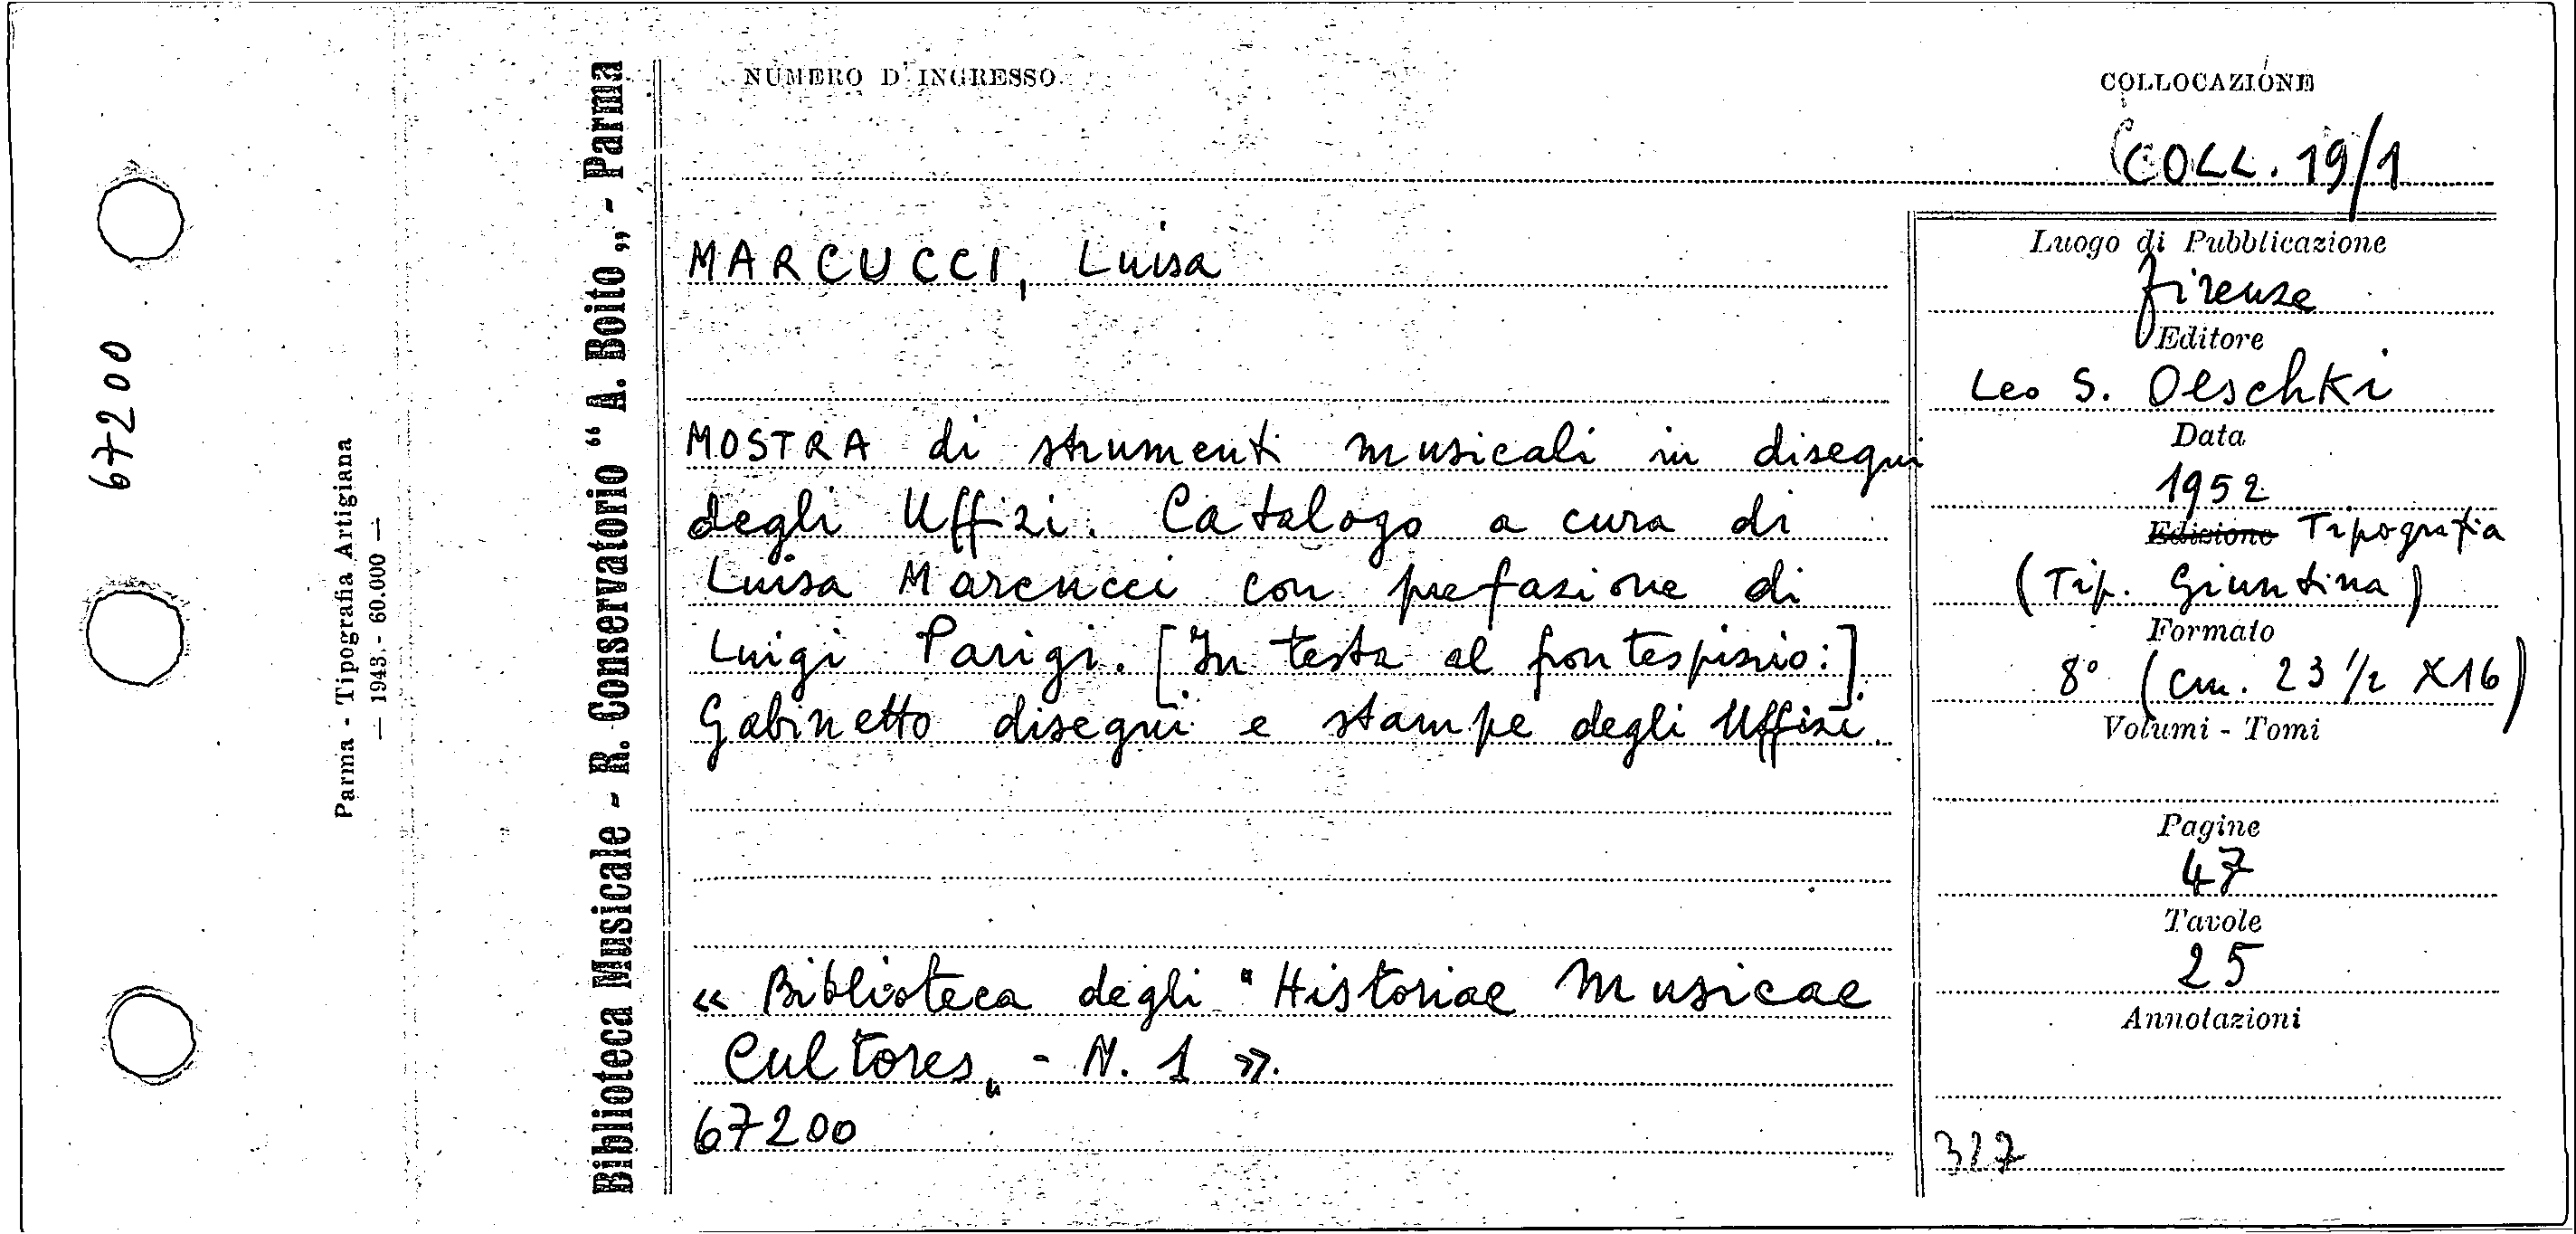 67200
Parma - Tipografia Artigiana
— 1943. - 60.000 —
Biblioteca Musicale - R. Conservatorio “ A. Boito „ - Parma
NUMERO D'INGRESSO
COLLOCAZIONE
COLL. 19/1
MARCUCCI, Luisa
MOSTRA di strumenti musicali in disegni
degli Uffizi. Catalogo a cura di
Luisa Marcucci con prefazione di
Luigi Parigi. [In testa al frontespizio:]
Gabinetto disegni e stampe degli Uffizi.
« Biblioteca degli “ Historiae Musicae
Cultores „ - N. 1 ».
67200
Luogo di Pubblicazione
Firenze
Editore
Leo S. Olschki
Data
1952
Edizione Tipografia
(Tip. Giuntina)
Formato
8° (cm. 23 1/2 X16)
Volumi - Tomi
Pagine
47
Tavole
25
Annotazioni
327